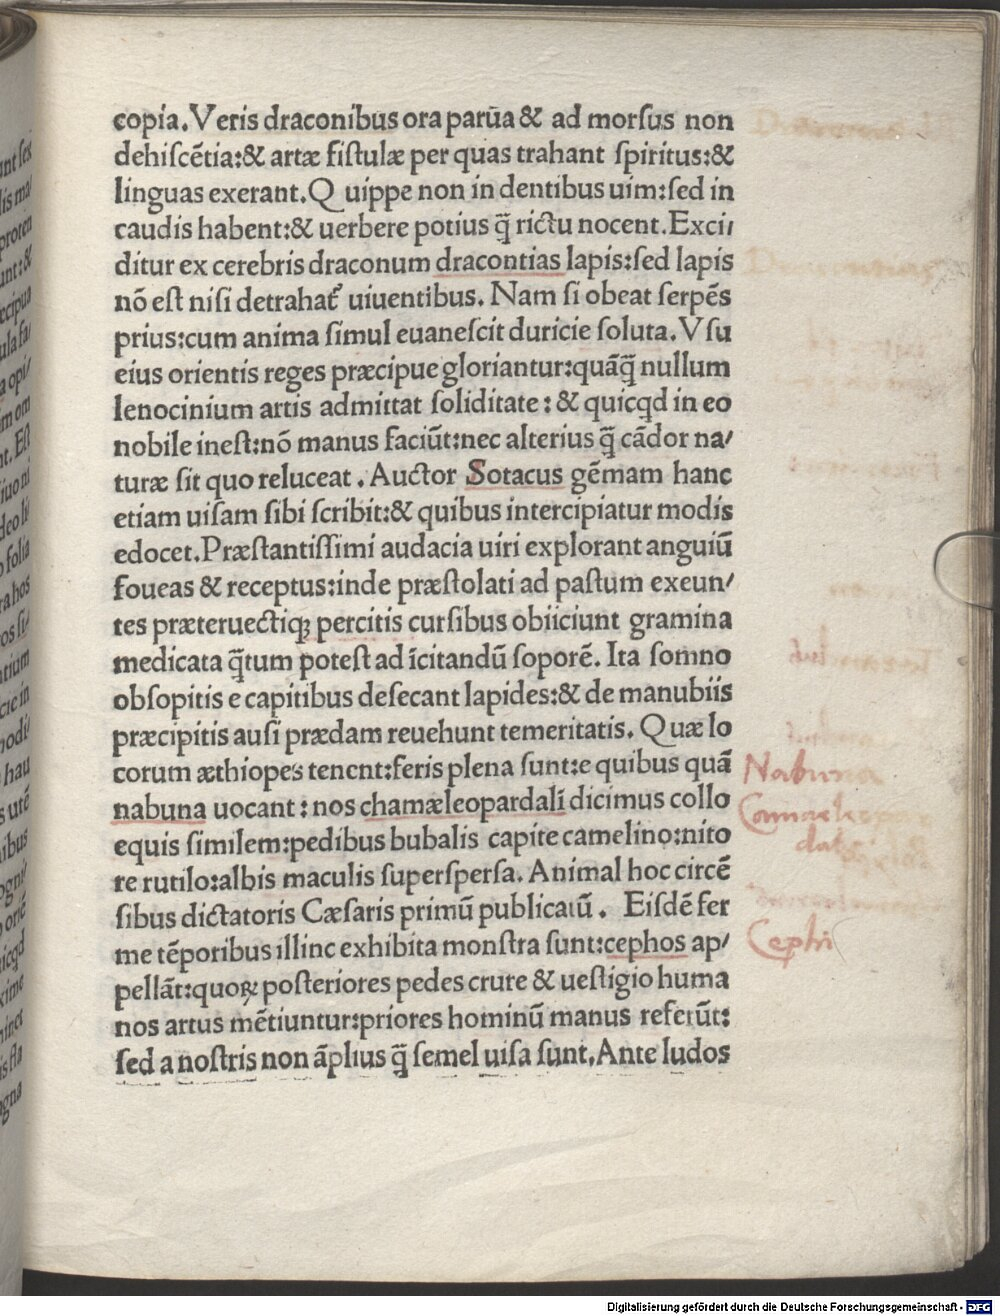 copia. Veris draconibus ora parūa & ad morſus non
dehiſcētia:& artæ fiſtulæ per quas trahant ſpiritus:&
linguas exerant. Q uippe non in dentibus uim:ſed in
caudis habent:& uerbere potius q̄ rictu nocent. Exci/
ditur ex cerebris draconum dracontias lapis:ſed lapis
nō eſt niſi detrahat̃ uiuentibus. Nam ſi obeat ſerpēs
prius:cum anima ſimul euaneſcit duricie ſoluta. V ſu
eius orientis reges præcipue gloriantur:quāq̄ nullum
lenocinium artis admittat ſoliditate: & quicqd in eo
nobile ineſt:nō manus faciūt:nec alterius q̄ cādor na/
turæ ſit quo reluceat . Auctor Sotacus gēmam hanc
etiam uiſam ſibi ſcribit:& quibus intercipiatur modis
edocet. Præſtantiſſimi audacia uiri explorant anguiū
foueas & receptus:inde præſtolati ad paſtum exeun/
tes præteruectiqꝫ percitis curſibus obiiciunt gramina
medicata q̄tum poteſt ad īcitandū ſoporē. Ita ſomno
obſopitis e capitibus deſecant lapides:& de manubiis
præcipitis auſi prædam reuehunt temeritatis. Q uæ lo
corum æthiopes tenent:feris plena ſunt:e quibus quā
nabuna uocant: nos chamæleopardalī dicimus collo
equis ſimilem:pedibus bubalis capite camelino:nito
re rutilo:albis maculis ſuperſperſa. Animal hoc circē
ſibus dictatoris Cæſaris primū publicatū . Eiſdē fer
me tēporibus illinc exhibita monſtra ſunt:cephos ap/
pellāt:quoꝝ poſteriores pedes crure & ueſtigio huma
nos artus mētiuntur:priores hominū manus referūt:
ſed a noſtris non āplius q̄ ſemel uiſa ſunt. Ante ludos
Nabuna
Cephi
Digitalisierung gefördert durch die Deutsche Forschungsgemeinschaft - DFG